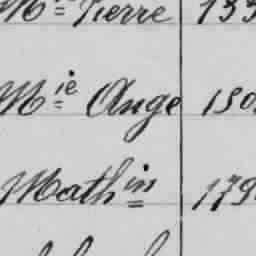 M^ie Pierre 133
M^ie Ange 180
Math^in 179